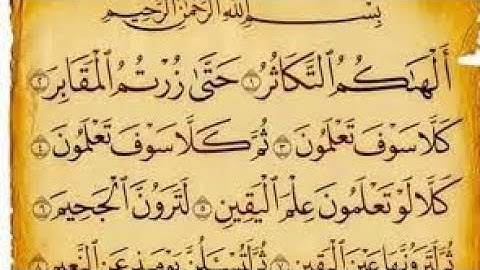 بِسْمِ اللَّهِ الرَّحْمَٰنِ الرَّحِيمِ
أَلْهَاكُمُ التَّكَاثُرُ ١ حَتَّىٰ زُرْتُمُ الْمَقَابِرَ ٢
كَلَّا سَوْفَ تَعْلَمُونَ ٣ ثُمَّ كَلَّا سَوْفَ تَعْلَمُونَ ٤
كَلَّا لَوْ تَعْلَمُونَ عِلْمَ الْيَقِينِ ٥ لَتَرَوُنَّ الْجَحِيمَ ٦
ثُمَّ لَتَرَوُنَّهَا عَيْنَ الْيَقِينِ ٧ ثُمَّ لَتُسْأَلُنَّ يَوْمَئِذٍ عَنِ النَّعِيمِ